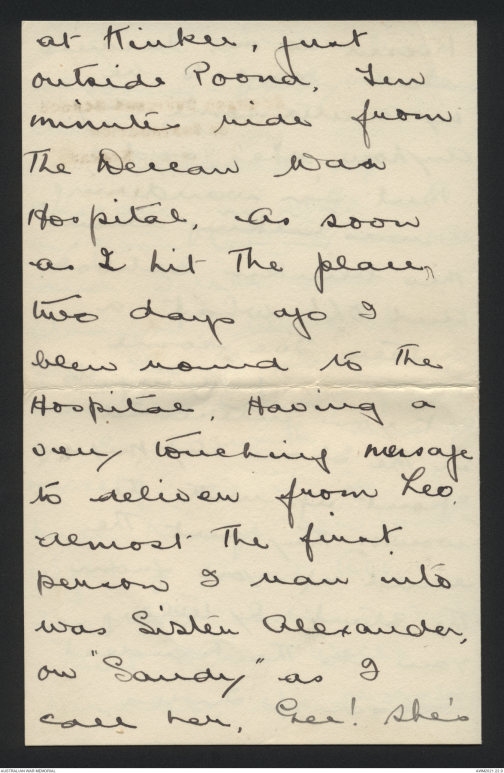 at Kirkee, just
outside Poona, Ten
minutes ride from
The Deccan War
Hospital, As soon
as I hit The place,
two days ago I
blew round to The
Hospital, Having a
very touching message
to deliver from Leo.
Almost The first
person I ran into
was Sister Alexander,
or "Sandy" as I
call her, Gee! she's
AUSTRALIAN WAR MEMORIAL